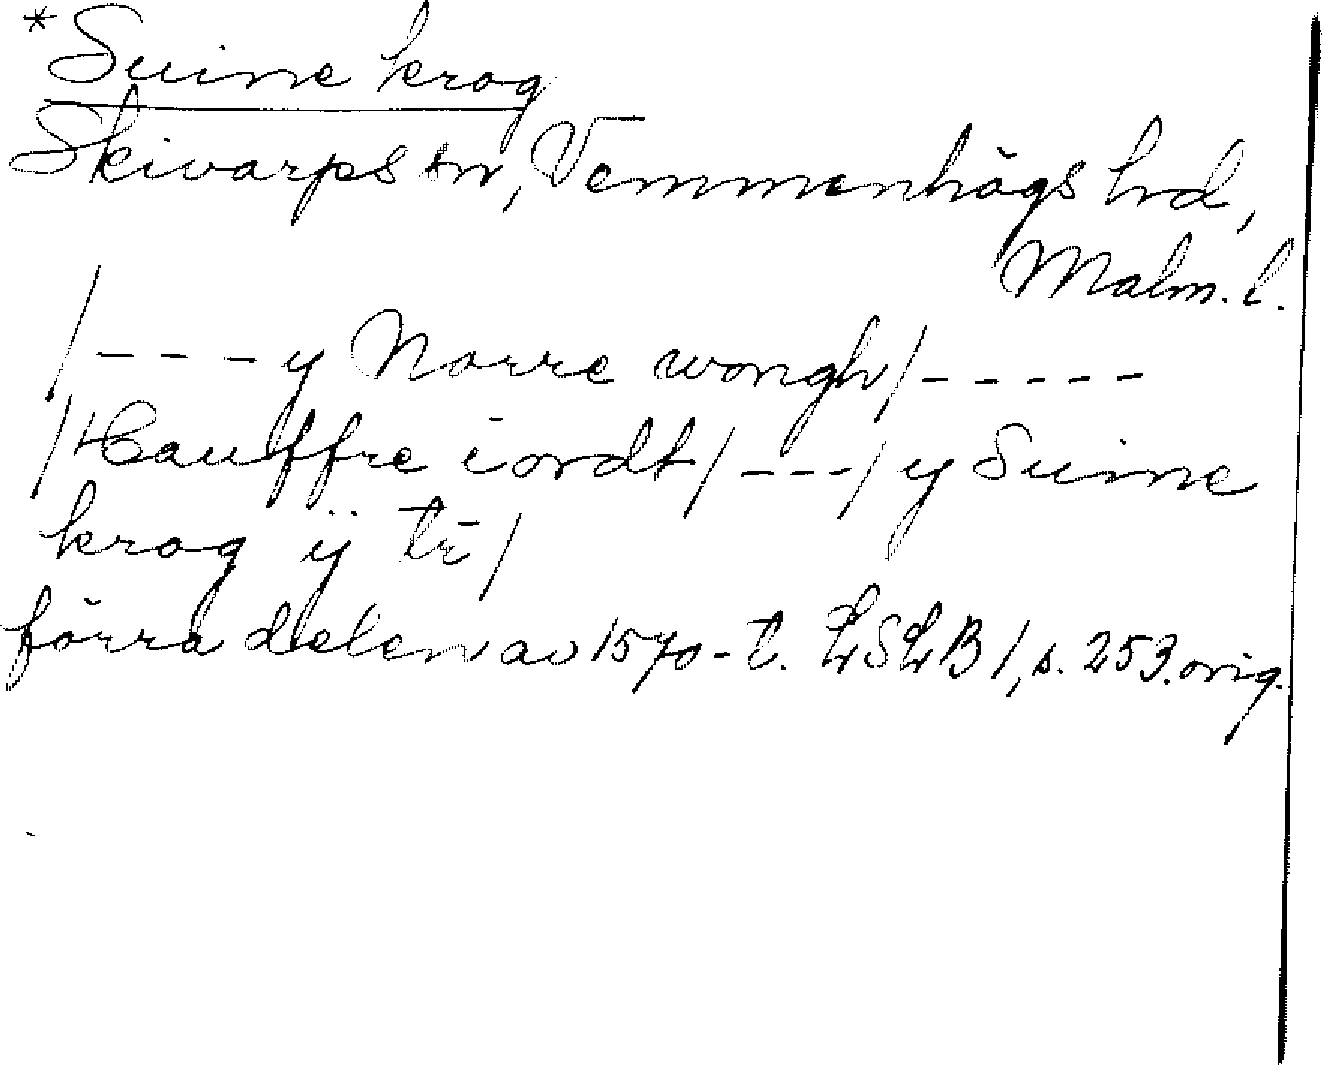 *Suine krog
Skivarps sn, Vemmenhögs hd,
Malm. l.
/---- y Norre wongh/-----
/Hauffre iordt/---/ y Suine
krog ÿ tr̄/
förra delen av 1570-t. LSLB 1, s. 253. orig.